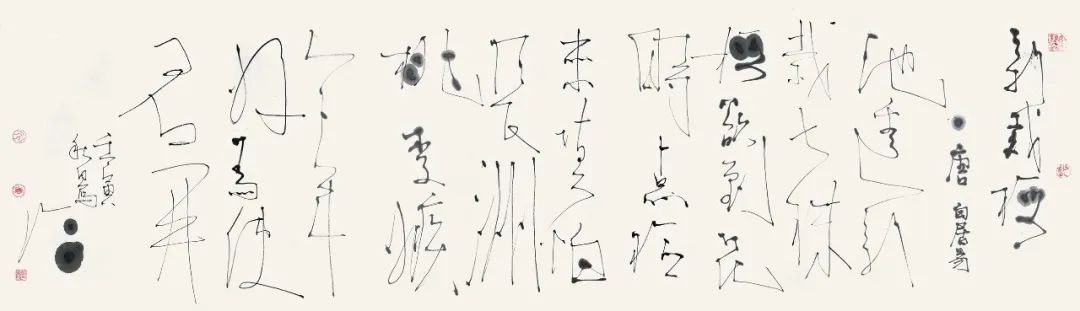 新栽梅
唐 白居易
池边新
栽七株
梅欲到花
时点检
来莫怕
长洲
桃李嫉
今年
好为使
君开
壬寅
秋日写